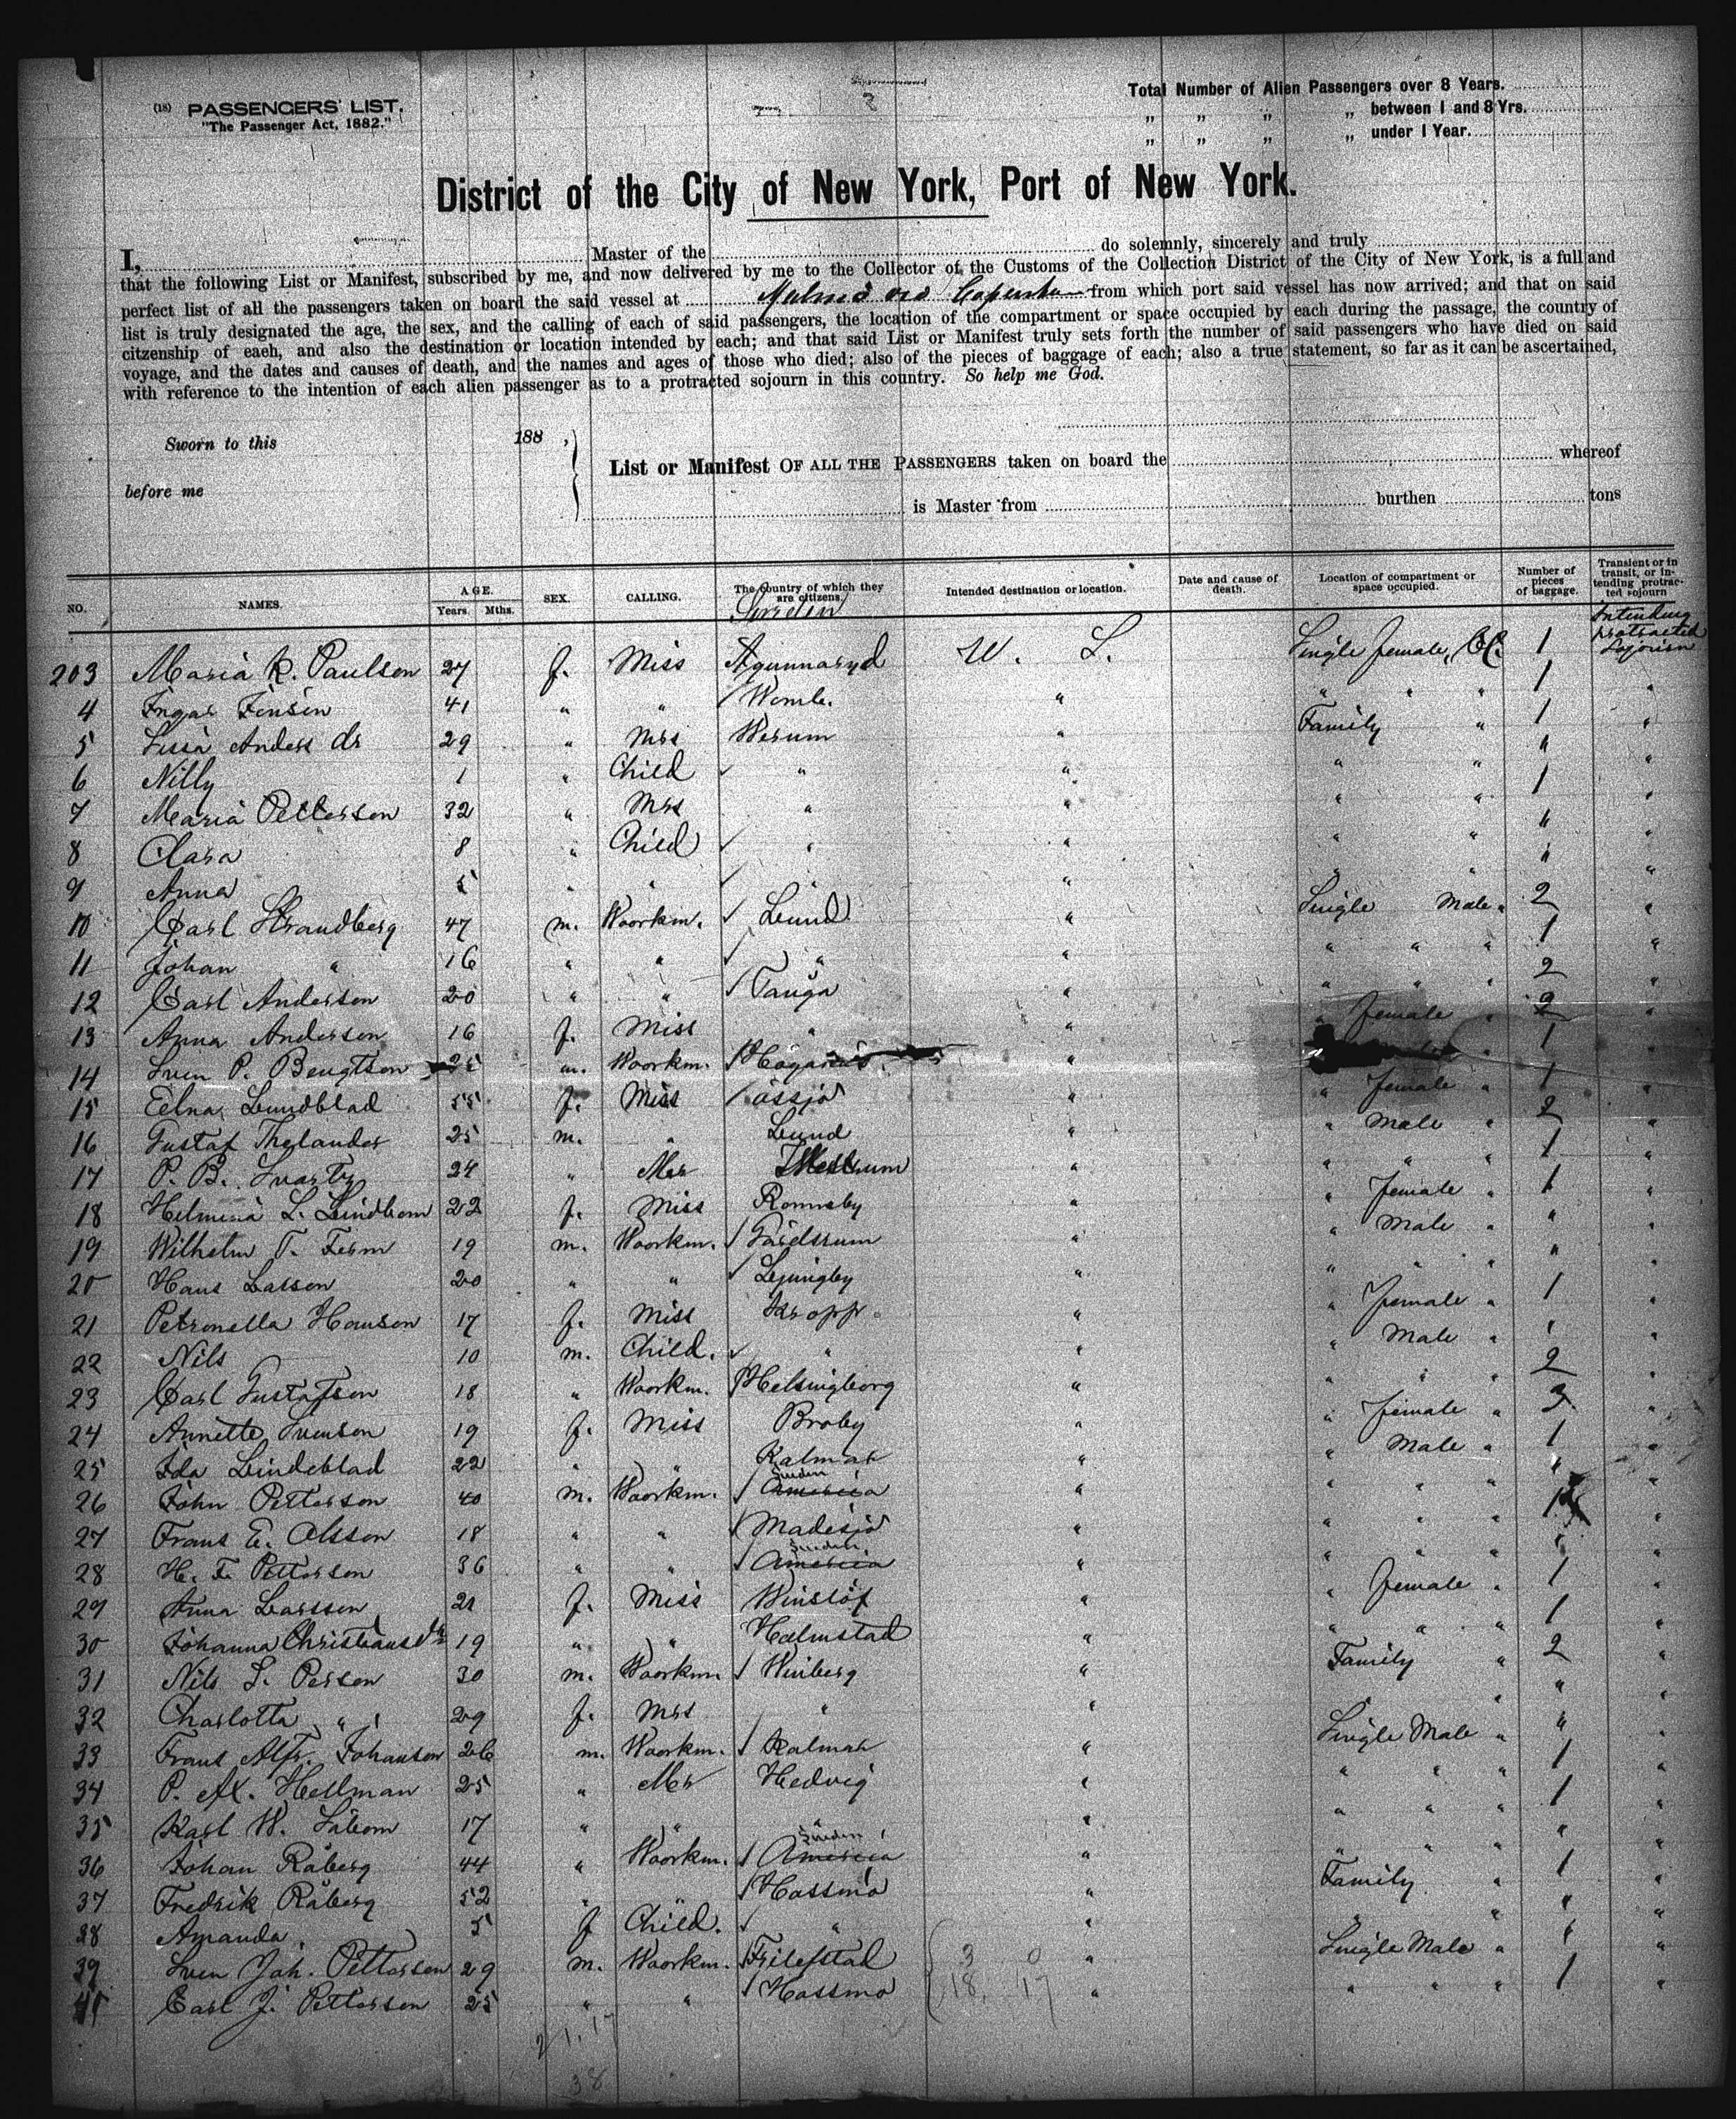 (18) PASSENGERS' LIST.
"The Passenger Act, 1882."
Total Number of Alien Passengers over 8 Years.
„ „ „ „ between 1 and 8 Yrs.
„ „ „ „ under 1 Year.
District of the City of New York, Port of New York.
I, Master of the do solemnly, sincerely and truly
that the following List or Manifest, subscribed by me, and now delivered by me to the Collector of the Customs of the Collection District of the City of New York, is a full and
perfect list of all the passengers taken on board the said vessel at Malmö via from which port said vessel has now arrived; and that on said
list is truly designated the age, the sex, and the calling of each of said passengers, the location of the compartment or space occupied by each during the passage, the country of
citzenship of eaeh, and also the destination or location intended by each; and that said List or Manifest truly sets forth the number of said passengers who have died on said
voyage, and the dates and causes of death, and the names and ages of those who died; also of the pieces of baggage of each; also a true statement, so far as it can be ascertained,
with reference to the intention of each alien passenger as to a protracted sojourn in this country. So help me God.
Sworn to this 188 ,
before me
List or Manifest OF ALL THE PASSENGERS taken on board the whereof
is Master from burthen tons
NO. NAMES. AGE. Years. Mths. SEX. CALLING. The country of which they are citizens. Intended destination or location. Date and cause of death. Location of compartment or space occupied. Number of pieces of baggage. Transient or in transit, or intending protracted sojourn
Sweden Intending protracted Sojourn
203 Maria K. Paulson 27 f. Miss Agunnaryd W. L. Single female, 1
4 Ingar Jensen 41 " " Womb. " " " " 1 "
5 Lissa Anders dr 29 " Mrs Wesum " Family " 1 "
6 Nilly 1 " Child " " " " " "
7 Maria Petterson 32 " Mrs " " " " 1 "
8 Clara 8 " Child " " " " " "
9 Anna 5 " " " " " " " "
10 Carl Strandberg 47 m. Woorkm. Lund " Single Male " 2 "
11 Johan " 16 " " " " " " " 1 "
12 Carl Anderson 20 " " Tånga " " " " 2 "
13 Anna Anderson 16 f. Miss " " " female " 2 "
14 Sven P. Bengtson 25 m. Woorkm. Höganäs " 1 "
15 Elna Lundblad 55 f. Miss össjö " " female " 1 "
16 Gustaf Thelander 25 m. " Lund " " Male " 2 "
17 P. B. Svarty 24 " Mr " " " " 1 "
18 Helmina L. Lindbom 22 f. Miss Ronneby " " female " 1 "
19 Wilhelm T. Ferm 19 m. Woorkm. Gårdsrum " " Male " " "
20 Hans Lasson 20 " " Ljungby " " " " " "
21 Petronella Hanson 17 f. Miss Kropp. " " female " 1 "
22 Nils 10 m. Child. " " " Male " " "
23 Carl Gustafson 18 " Woorkm. Helsingborg " " " " 2 "
24 Annette Svenson 19 f. Miss Broby " " female " 3 "
25 Ida Lindeblad 22 " " Kalmar " " Male " 1 "
26 John Petterson 40 m. Woorkm. Sweden America " " " " " "
27 Frans E. Olsson 18 " " Madesjö " " " " 1 "
28 H. F. Petterson 36 " " Sweden America " " " " " "
29 Anna Larsson 21 f. Miss Winslöf " " female " 1 "
30 Johanna Christiansdtr 19 " " Halmstad " " " " 1 "
31 Nils L. Person 30 m. Woorkm. Winberg " Family " 2 "
32 Charlotta " 29 f. Mrs " " " " "
33 Frans Alfr. Johanson 26 m. Woorkm. Kalmar " Single Male " " "
34 P. Ax. Hellman 25 " Mr Hedvig " " " " 1 "
35 Karl W. 17 " " " " " " " 1 "
36 Johan Råberg 44 " Woorkm. Sweden America " " " " " "
37 Fredrik Råberg 52 " " Hossmo " Family " 1 "
38 Amanda 5 f Child. " " " " " "
39 Sven Joh. Petterson 29 m. Woorkm. Frilestad " Single Male " 1 "
Carl J. Petterson 25 " " Hossmo " " " " 1 "
3 0
18. 17
38